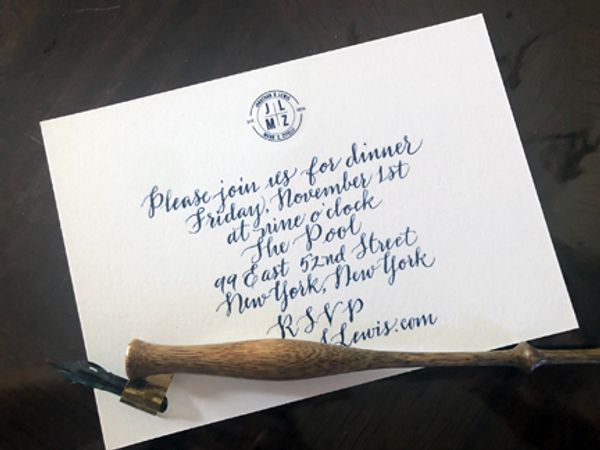 JONATHAN & LEWIS
J L
M Z
Please join us for dinner
Friday, November 1st
at nine o'clock
The Pool
99 East 52nd Street
New York, New York
RSVP
Lewis.com